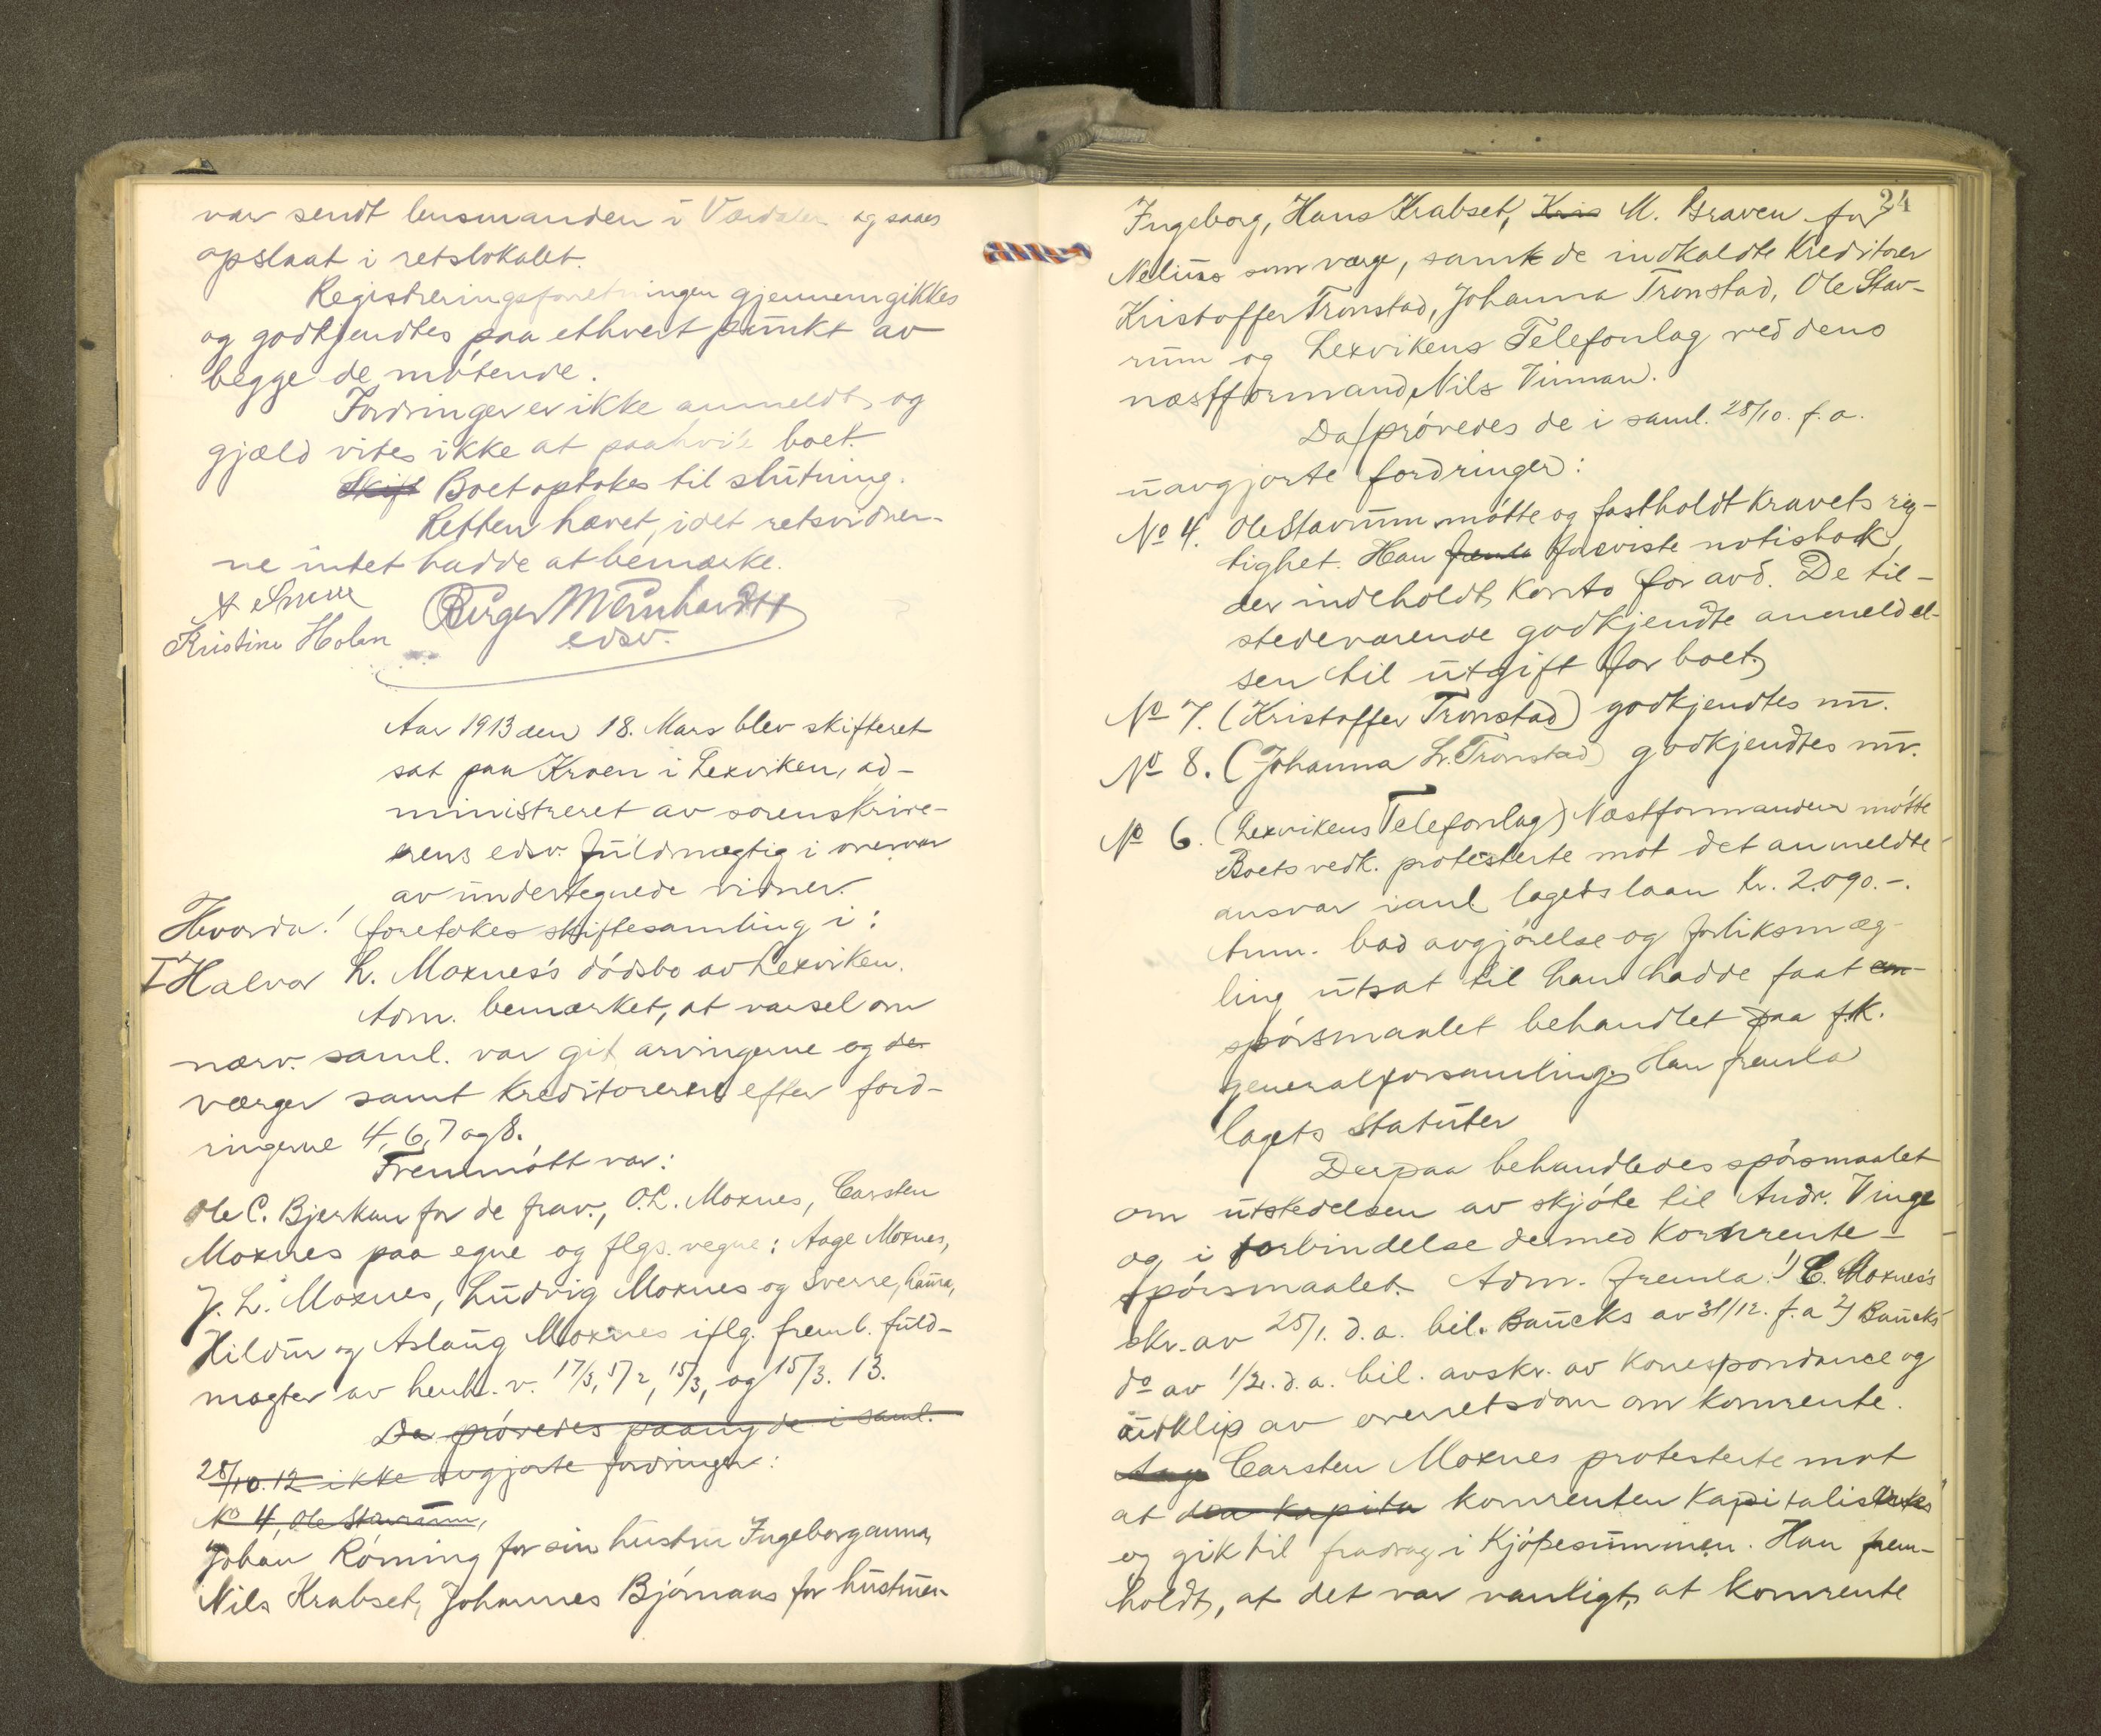 var sendt lensmanden i Værdalen og saaes
opslaat i retslokalet.
Registreringsforretningen gjennemgikkes
og godkjendtes paa ethvert punkt av
begge de møtende.
Fordringer er ikke anmeldt, og
gjæld vites ikke at paahvile boet.
Skift Boet optokes til slutning.
Retten hævet, idet retsvidner-
ne intet hadde at bemærke.
Kristine Holen
edsv.
Aar 1913 den 18. Mars blev skifteret
sat paa Kroen i Lexviken, ad-
ministreret av sorenskrive-
rens edsv. fuldmægtig i overvær
av undertegnede vidner.
Hvorda! foretokes skiftesamling i:
I Halvor L. Moxnes's dødsbo av Lexviken.
Adm. bemærket, at varsel om
nærv. saml. var git arvingerne og de
værger samt kreditorerne efter ford-
ringerne 4, 6, 7 og 8.
Fremmøtt var:
Ole C. Bjerkan for de frav., O.L. Moxnes, Carsten
Moxnes paa egne og flgs. vegne: Aage Moxnes,
J. L. Moxnes, Ludvig Moxnes og Sverre, Laura,
Hildur og Aslaug Moxnes iflg. freml. fuld-
magter av henh. v. 17/3, 5/2, 15/3, og 15/3. 13.
Da prøvedes paany de i saml.
28/10. 12 ikke avgjorte fordringer:
No 4, Ole Stavrum,
Johan Røming for sin hustru Ingeborganna,
Nils Krabset, Johannes Bjørnaas for hustruen
24
Ingeborg, Hans Krabset, Kris M. Graven for
Nelius som værge, samt de indkaldte Kreditorer
Kristoffer Tronstad, Johanna Tronstad, Ole Stav-
rum og Lexvikens Telefonlag ved dens
næstformand Nils Vinnan.
Da prøvedes de i saml. 28/10. f. a.
uavgjorte fordringer:
No 4. Ole Stavrum møtte og fastholdt kravets rig-
tighet. Han freml foreviste notisbok,
der indeholdt konto for avd. De til-
stedeværende godkjendte anmeldel-
sen til utgift for boet.
No 7. (Kristoffer Tronstad) godkjendtes nu.
No 8. (Johanna L. Tronstad) godkjendtes nu.
No 6. (Lexvikens Telefonlag) Næstformanden møtte
Boets vedk. protesterte mot det anmeldte
ansvar i anl. lagets laan Kr. 2.090.-.
Anm. bad avgjørelse og forliksmæg-
ling utsat til han hadde faat en
spørsmaalet behandlet paa f.k.
generalforsamling. Han fremla
lagets statuter
Derpaa behandledes spørsmaalet
om utstedelsen av skjøte til Andr. Vinge
og i forbindelse dermed kornrente-
spørsmaalet. Adm. fremla: 1) C. Moxnes's
skr. av 25/1. d. a. bil. Baucks av 31/12. f. a 2) Baucks
do av 1/2. d. a. bil. avskr. av korrespondance og
utklip av overretsdom om kornrente.
Aage Carsten Moxnes protesterte mot
at den kapita kornrenten kapitalisertes
og gik til fradrag i kjøpesummen. Han frem-
holdt, at det var vanligt, at kornrente